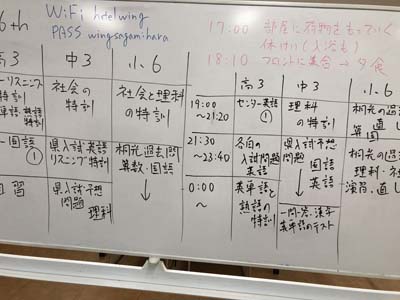 6th
WiFi hotelwing
PASS wingsagamihara
17:00 部屋に荷物をもっていく
休けい(入浴も)
18:10 フロントに集合→夕食
高3
中3
小6
リスニング
特訓
単語・熟語
特訓
社会の
特訓
社会と理科
の特訓
国語
①
県入試・英語
リスニング特訓
桐光過去問
算数・国語
↓
自習
県入試・予想
問題
理科
高3
中3
小6
19:00
~21:20
センター英語
①
理科
の特訓
桐光の過
直し
算国
21:30
~23:40
各自の
入試問題
英語
県入試予想
問題
国語
英語
桐光の過
理科・社
演習、直し
0:00
~
英単語と
熟語の
特訓
一問一答、漢字
英単語のテスト